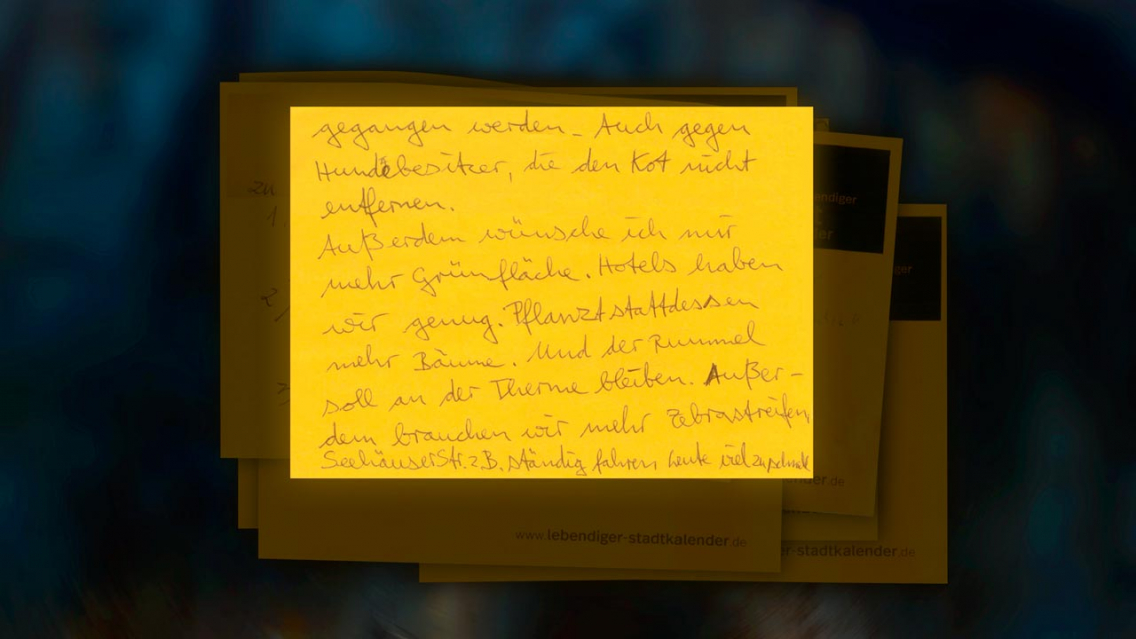 gegangen werden. Auch gegen
Hundebesitzer, die den Kot nicht
entfernen.
Außerdem wünsche ich mir
mehr Grünfläche. Hotels haben
wir genug. Pflanzt stattdessen
mehr Bäume. Und der Rummel
soll an der Therme bleiben. Außer-
dem brauchen wir mehr Zebrastreifen
SeehäuserStr. z.B. ständig fahren Leute viel zu schnell
zu
1.
2.
endiger
er
ger
nder.de
www.lebendiger-stadtkalender.de
er-stadtkalender.de